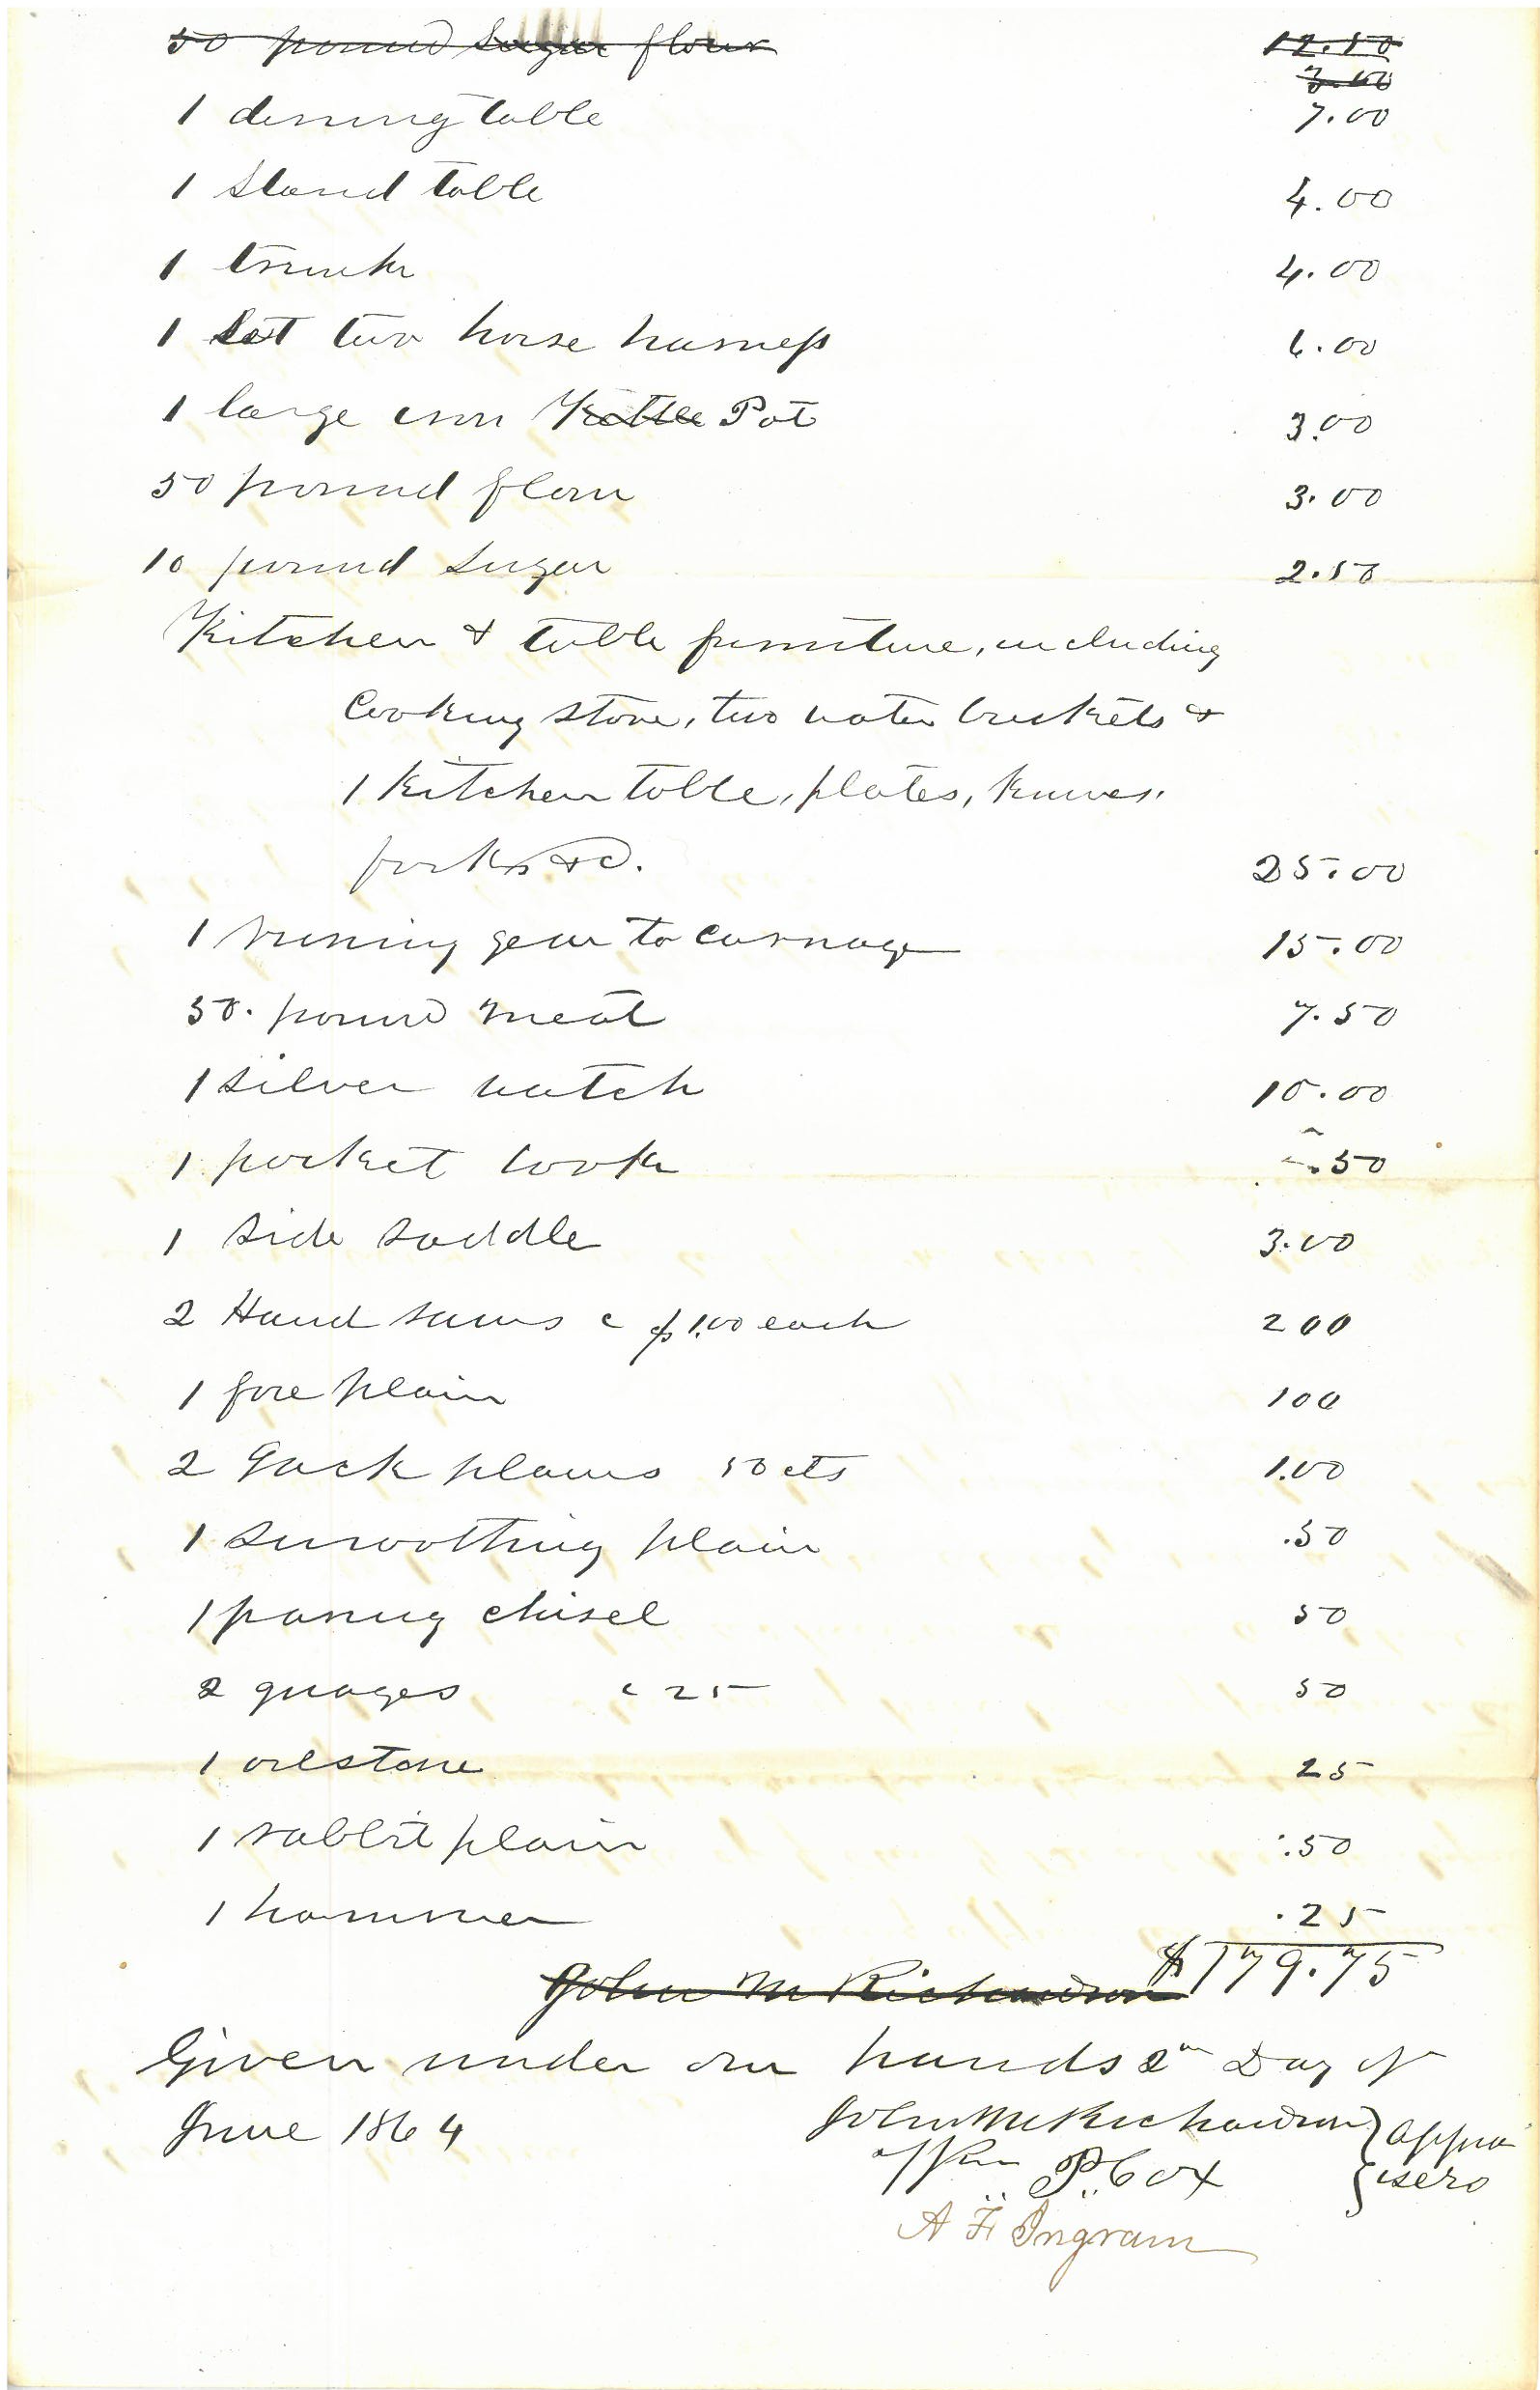 50 pound sugar flour 12.50
3.00
1 dinning table 7.00
1 Stand table 4.00
1 trunk 4.00
1 Set two horse harness 6.00
1 large iron Kettle Pot 3.00
50 pound flour 3.00
10 pound sugar 2.50
Kitchen & table furniture, including
Cooking stove, two water buckets &
1 Kitchen table, plates, knives,
forks &c. 25.00
1 running gear to carriage 15.00
50. pound meat 7.50
1 silver watch 10.00
1 pocket book .50
1 side saddle 3.00
2 Hand saws c $1.00 each 200
1 fore plain 100
2 Jack plains 50 cts 1.00
1 smoothing plain .50
1 paring chisel 50
2 guages c 25 50
1 oilstone 25
1 rabbit plain .50
1 hammer .25
John M Richardson $179.75
Given under our hands 2n Day of
June 1864 John M Richardson } apprai
P. Cox } isers
A F Ingram